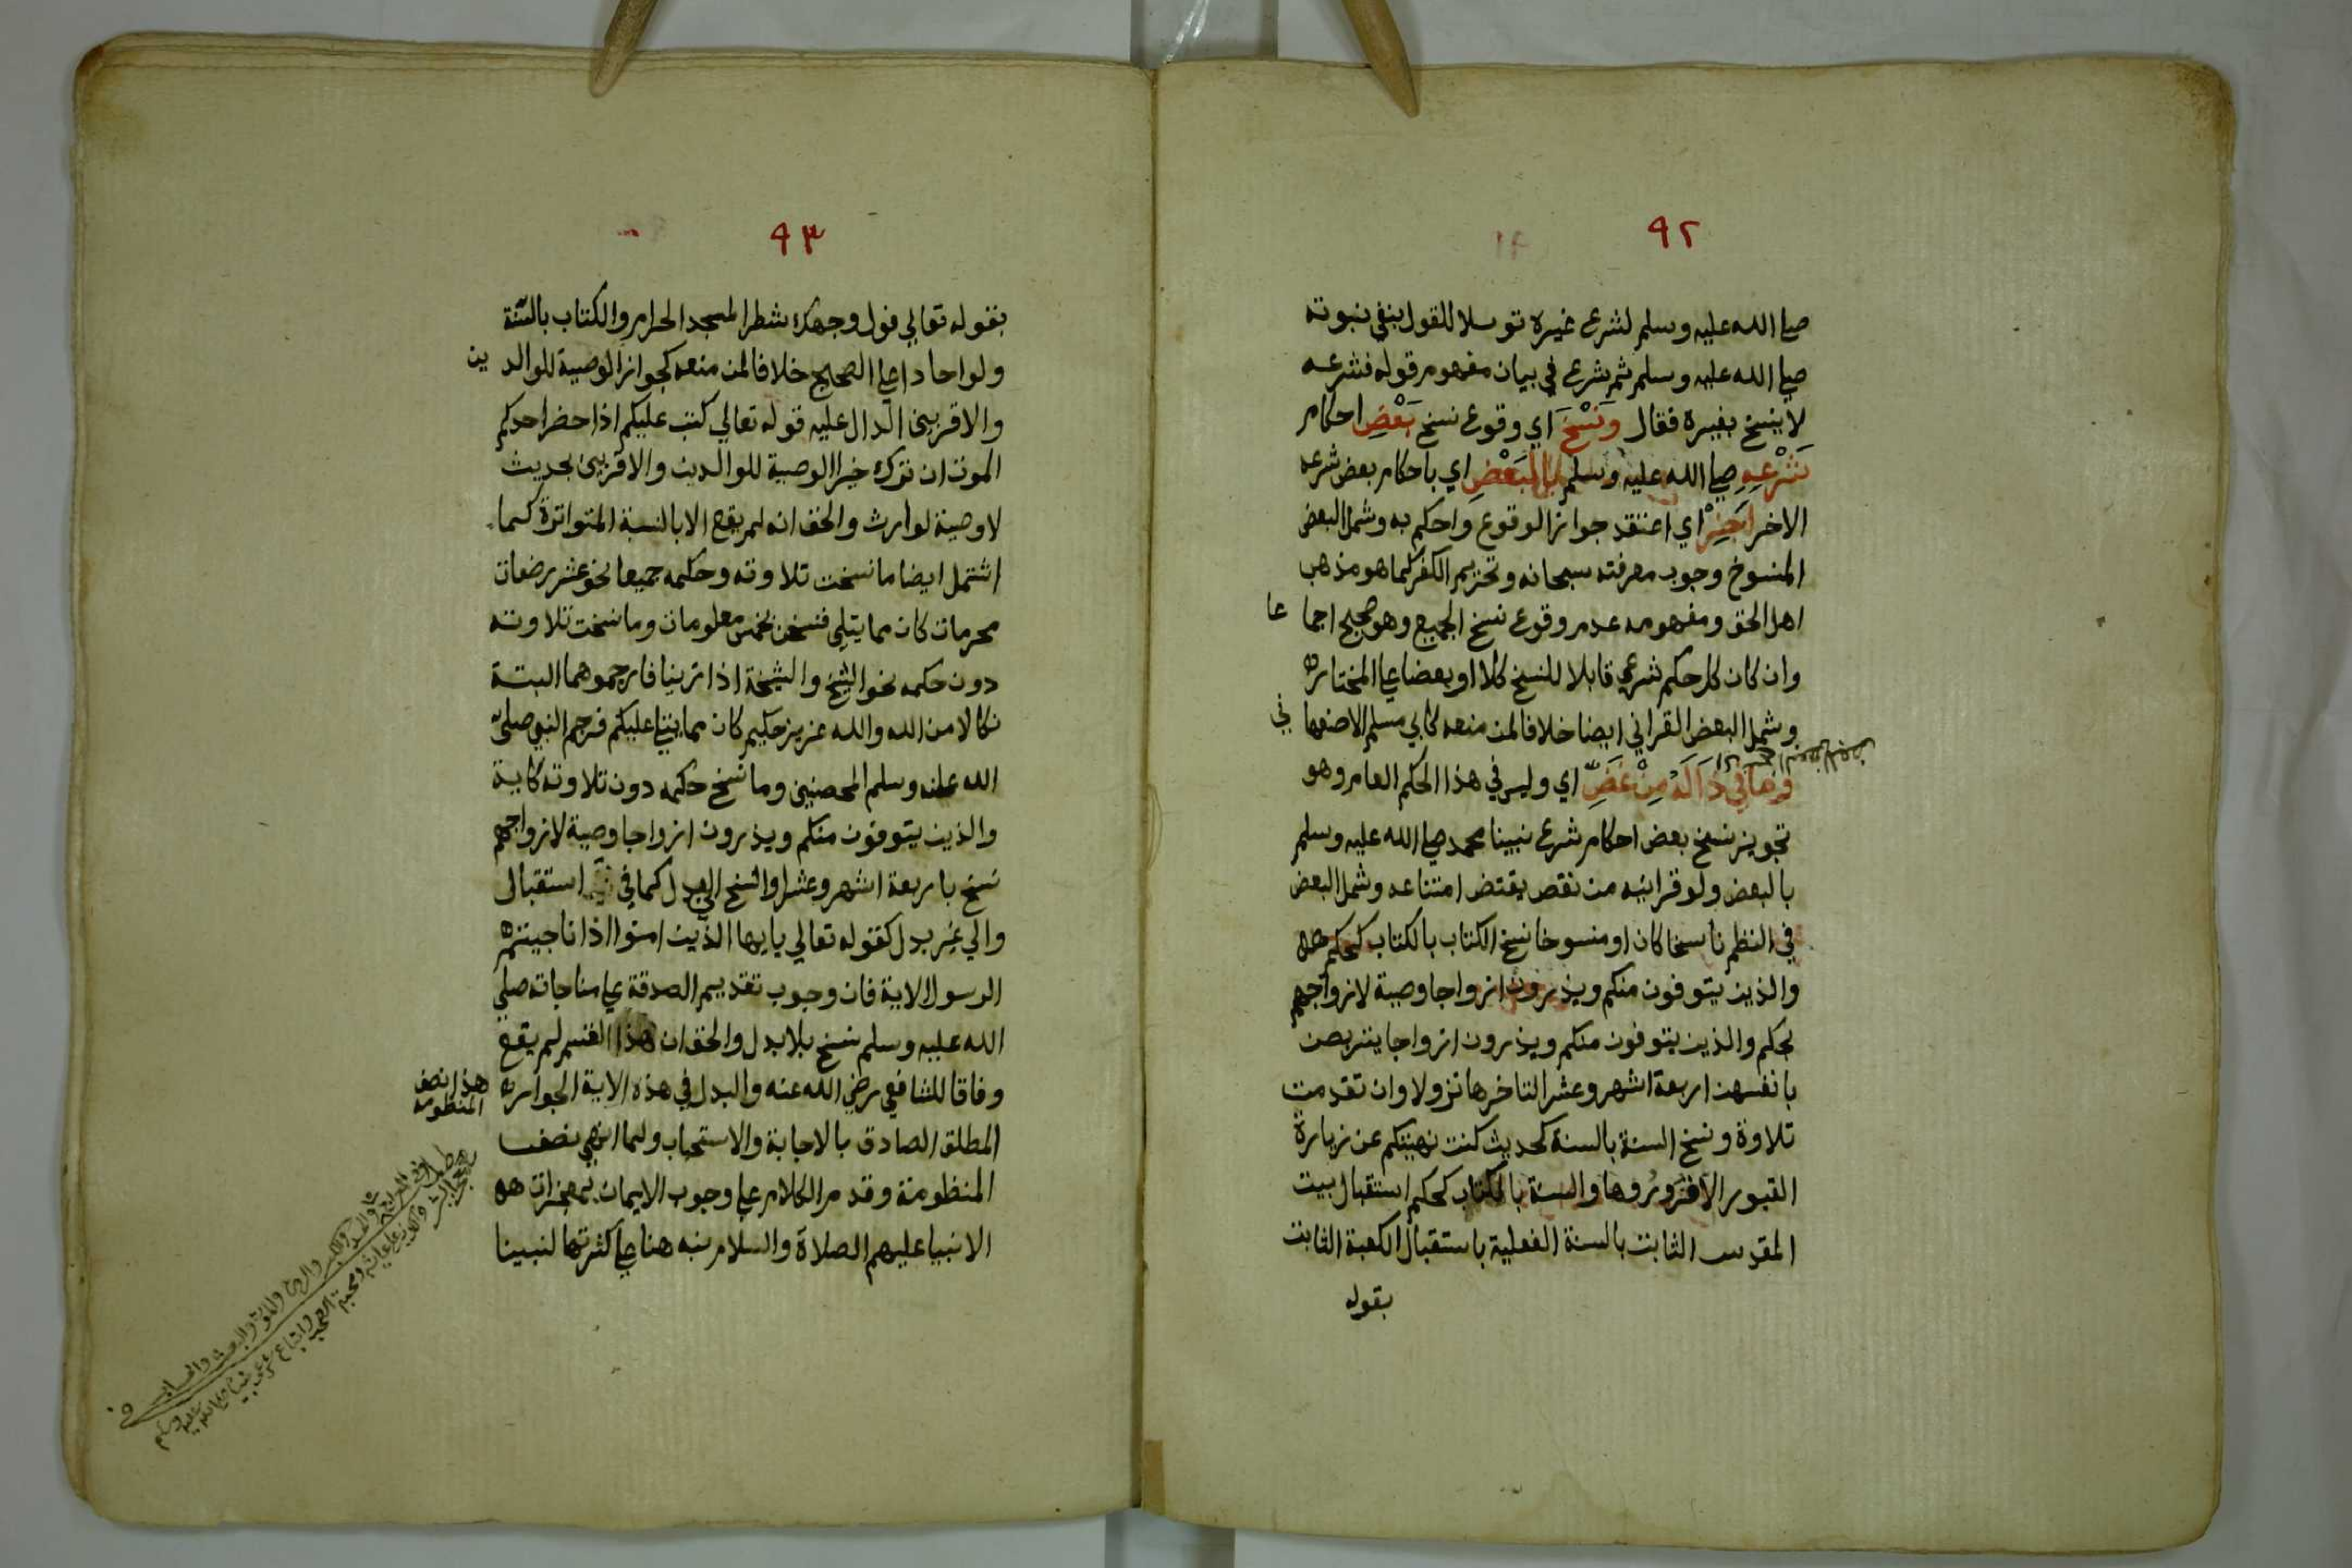 ٩٢
صلى الله عليه وسلم لشرع غيره توسلا للقول بنفي نبوته
صلى الله عليه وسلم ثم شرع في بيان مفهوم قوله فشرعه
لا ينسخ بغيره فقال وَنَسْخَ اي وقوع نسخ بَعْضِ احكام
شَرْعِهِ صلى الله عليه وسلم بِالْبَعْضِ اي باحكام بعض شرعه
الاخر أَجِزْ اي اعتقد جواز الوقوع واحكم به وشمل البعض
المنسوخ وجوب معرفته سبحانه وتحريم الكفر كما هو مذهب
اهل الحق ومفهومه عدم وقوع نسخ الجميع وهو صحيح اجماعا
وان كان كل حكم شرعي قابلا للنسخ كلا او بعضا على المختار
وشمل البعض القراني ايضا خلافا لمن منعه كابي مسلم الاصفهاني
وَمَا فِي ذَا لَهُ مِنْ غَضِّ اي وليس في هذا الحكم العام وهو
تجويز نسخ بعض احكام شرع نبينا محمد صلى الله عليه وسلم
بالبعض ولو قرانيه من نقص يقتض امتناعه وشمل البعض
في النظم ناسخا كان او منسوخا نسخ الكتاب بالكتاب كحكم
والذين يتوفون منكم ويذرون ازواجا وصية لازواجهم
بحكم والذين يتوفون منكم ويذرون ازواجا يتربصن
بانفسهن اربعة اشهر وعشرا لتاخرها نزولا وان تقدمت
تلاوة ونسخ السنة بالسنة كحديث كنت نهيتكم عن زيارة
القبور الا فزوروها والسنة بالكتاب كحكم استقبال بيت
المقدس الثابت بالسنة الفعلية باستقبال الكعبة الثابت
بقوله
٩٣
بقوله تعالي فول وجهك شطر المسجد الحرام والكتاب بالسنة
ولو احادا على الصحيح خلافا لمن منعه كجواز الوصية للوالدين
والاقربين الدال عليه قوله تعالي كتب عليكم اذا حضر احدكم
الموت ان ترك خيرا الوصية للوالدين والاقربين بحديث
لا وصية لوارث والحق انه لم يقع الا بالسنة المتواترة كما
اشتمل ايضا ما نسخت تلاوته وحكمه جميعا نحو عشر رضعات
محرمات كان مما يتلي فنسخن بخمس معلومات وما نسخت تلاوته
دون حكمه نحو الشيخ والشيخة اذا زنيا فارجموهما البتة
نكالا من الله والله عزيز حكيم كان مما يتلى عليكم فرجم النبي صلى
الله عليه وسلم المحصنين وما نسخ حكمه دون تلاوته كاية
والذين يتوفون منكم ويذرون ازواجا وصية لازواجهم
نسخ باربعة اشهر وعشرا والنسخ الي بدل كما في استقبال
والي غير بدل كقوله تعالي يايها الذين امنوا اذا ناجيتم
الرسول الاية فان وجوب تقديم الصدقة على مناجاته صلي
الله عليه وسلم نسخ بلا بدل والحق ان هذا القسم لم يقع
وفاقا للشافعي رضي الله عنه والبدل في هذه الاية الجواز
المطلق الصادق بالاجابة والاستحباب ولما انهي نصف
المنظومة وقدم الكلام على وجوب الايمان بمعجزات
الانبيا عليهم الصلاة والسلام نبه هنا على كثرتها لنبينا
هذا نصف
المنظومة